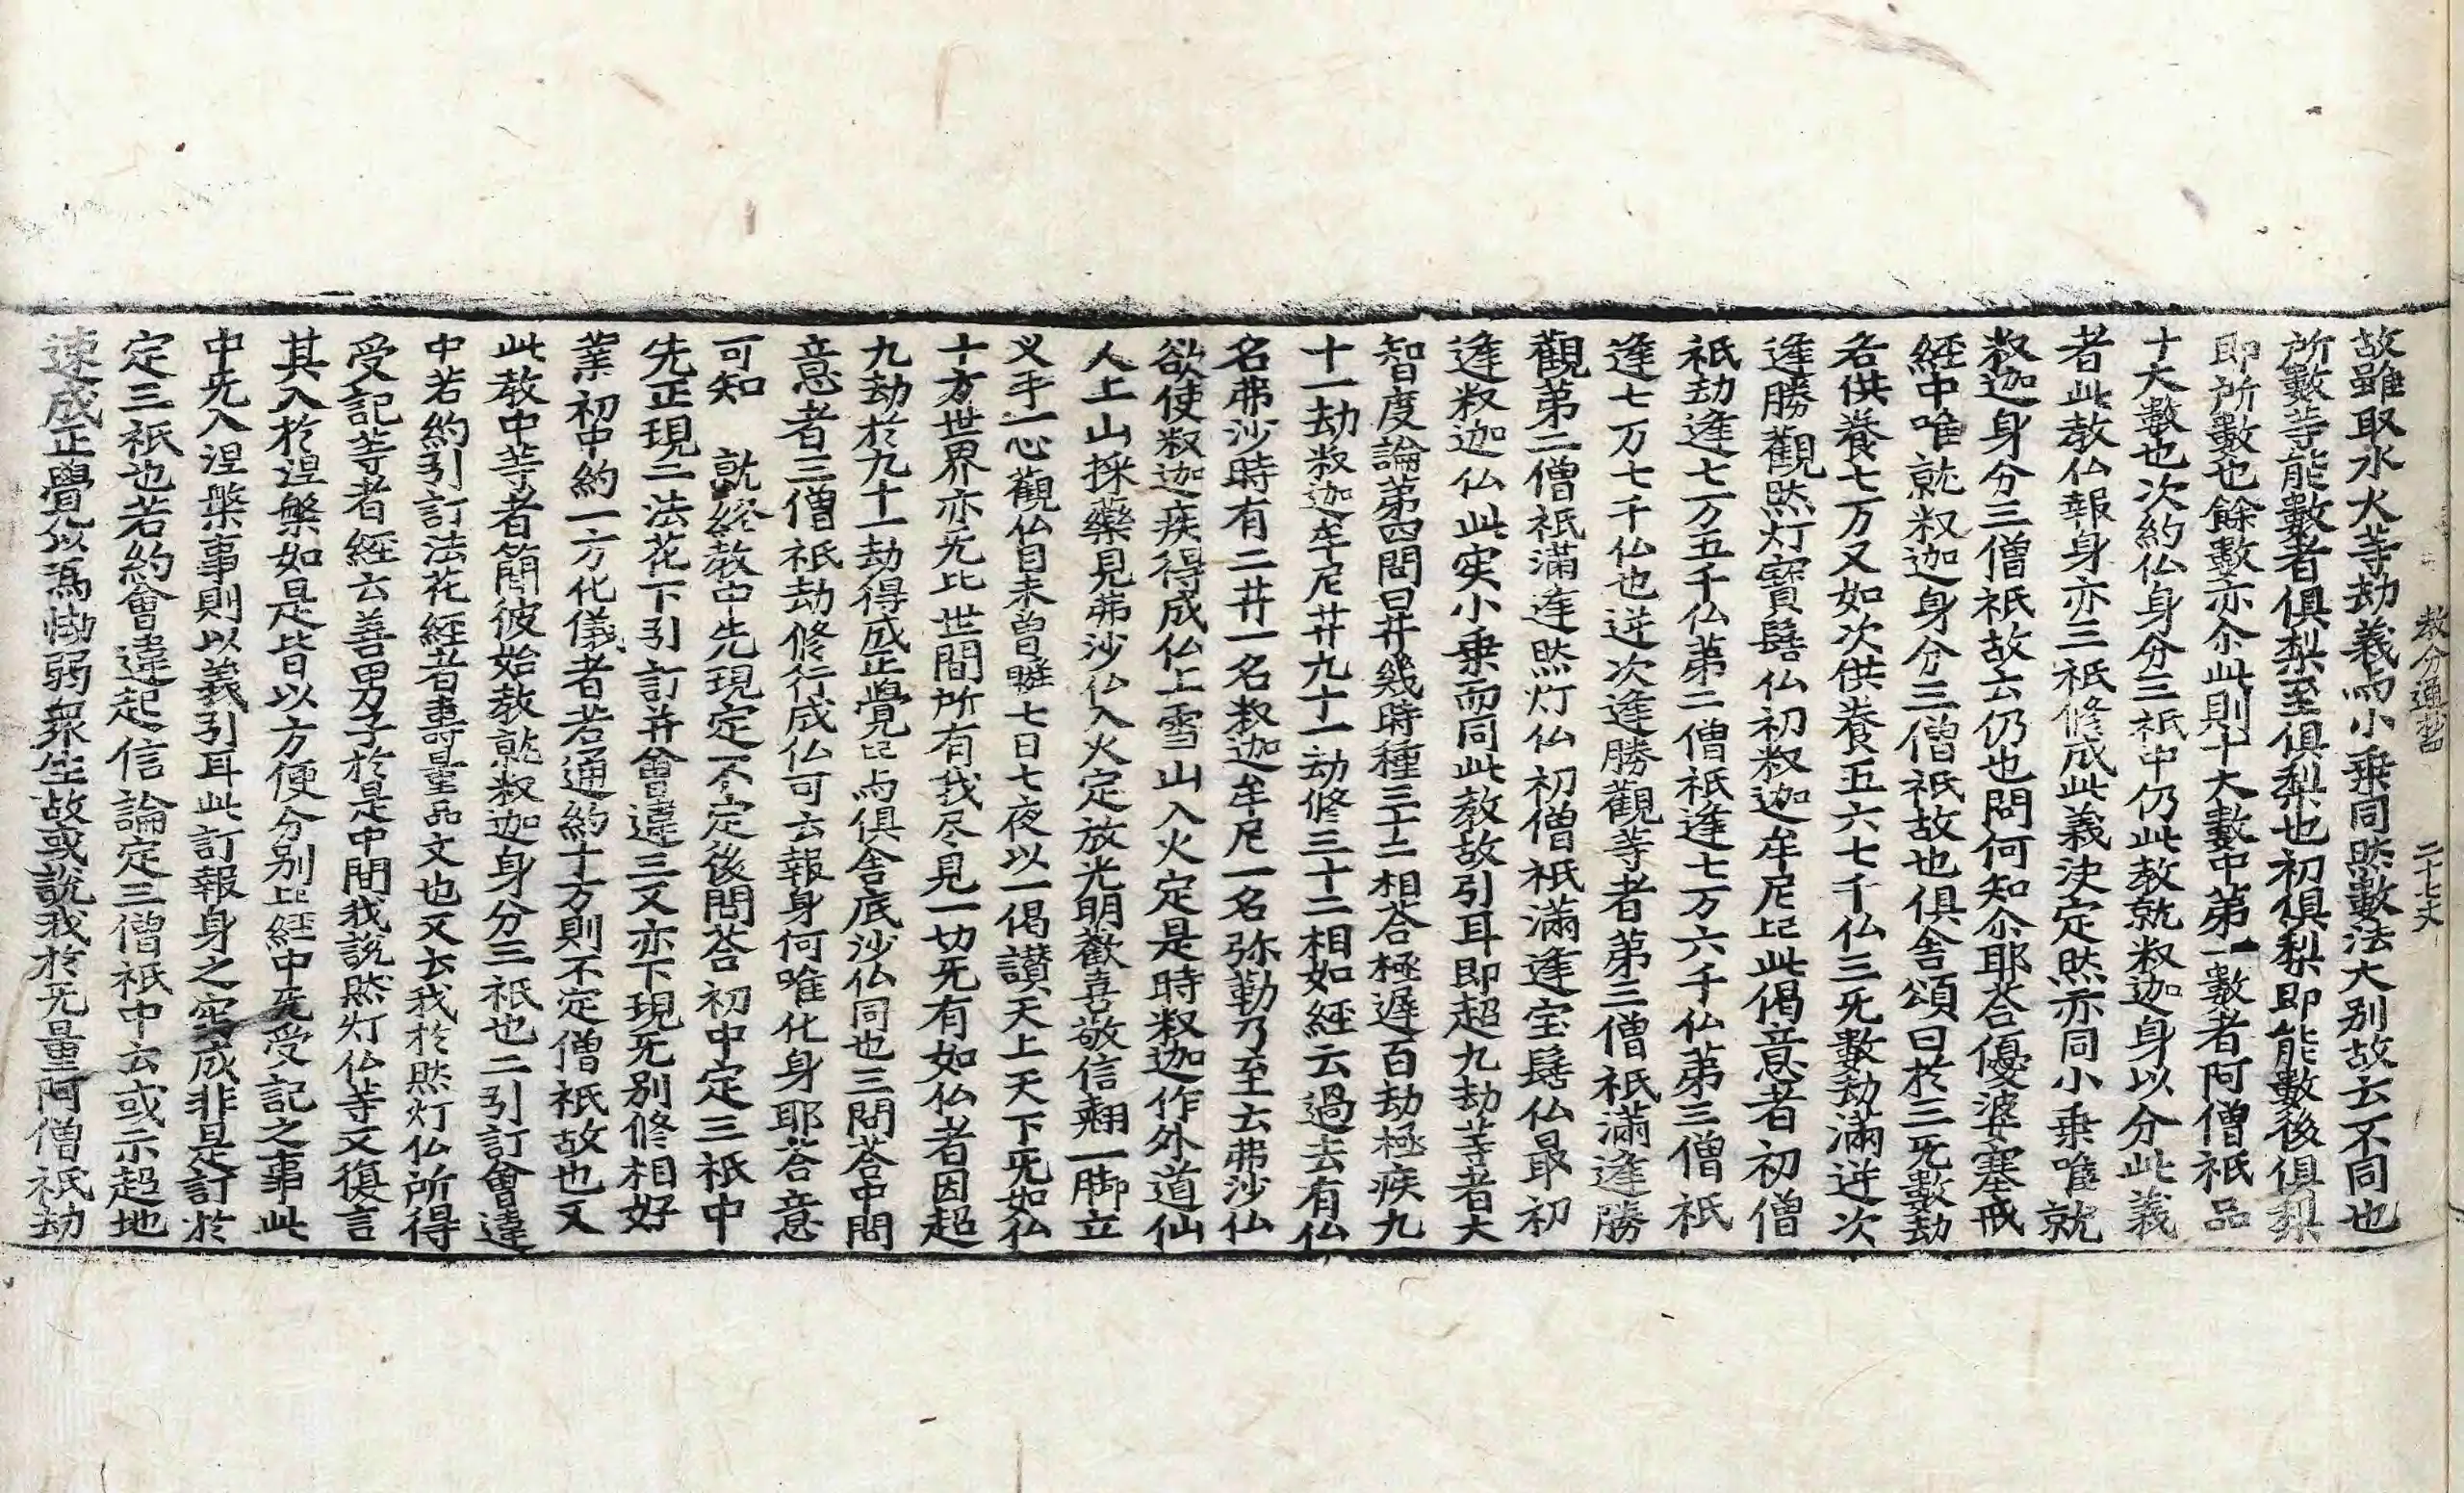 教分通抄四 二十七丈
故雖取水火等劫義而小乗同然數法大别故云不同也
所數等能數者俱梨至俱梨也初俱梨即能數後俱梨
即所數也餘數亦尒此則十大數中第一數者阿僧祇品
十大數也次約仏身分三祇中仍此教就釈迦身以分此義
者此教仏報身亦三祇修成此義決定然亦同小乗唯就
釈迦身分三僧祇故云仍也問何知尒耶荅優婆塞戒
經中唯就釈迦身分三僧祇故也俱舎頌曰於三旡數劫
各供養七万又如次供養五六七千仏三旡數劫滿逆次
逢勝觀然灯寳髻仏初釈迦牟尼已上此偈意者初僧
祇劫逢七万五千仏第二僧祇逢七万六千仏第三僧祇
逢七万七千仏也逆次逢勝觀等者第三僧祇滿逢勝
觀第二僧祇滿逢然灯仏初僧祇滿逢宝髻仏最初
逢釈迦仏此実小乗而同此教故引耳即超九劫等者大
智度論第四問曰菩薩幾時種三十二相荅極遅百劫極疾九
十一劫釈迦牟尼菩薩九十一劫修三十二相如經云過去有仏
名弗沙時有二菩薩一名釈迦牟尼一名弥勒乃至云弗沙仏
欲使釈迦疾得成仏上雪山入火定是時釈迦作外道仙
人上山採藥見弗沙仏入火定放光明歡喜敬信翹一脚立
叉手一心觀仏目未曽瞚七日七夜以一偈讃天上天下旡如仏
十方世界亦旡比世間所有我尽見一切旡有如仏者因超
九劫於九十一劫得成正覺已上与俱舎底沙仏同也三問荅中問
意者三僧祇劫修行成仏可云報身何唯化身耶荅意
可知　就終教中先現定不定後問荅初中定三祇中
先正現二法花下引訂并會違三又亦下現旡别修相好
業初中約一方化儀者若通約十方則不定僧祇故也又
此教中等者簡彼始教就釈迦身分三祇也二引訂會違
中若約引訂法花經者壽量品文也又云我於然灯仏所得
受記等者經云善男子於是中間我說然灯仏等又復言
其入於涅槃如是皆以方便分别已上經中旡受記之事此
中旡入涅槃事則以義引耳此訂報身之実成非是訂於
定三祇也若約會違起信論定三僧祇中云或示超地
速成正覺以爲怯弱衆生故或說我於旡量阿僧祇劫